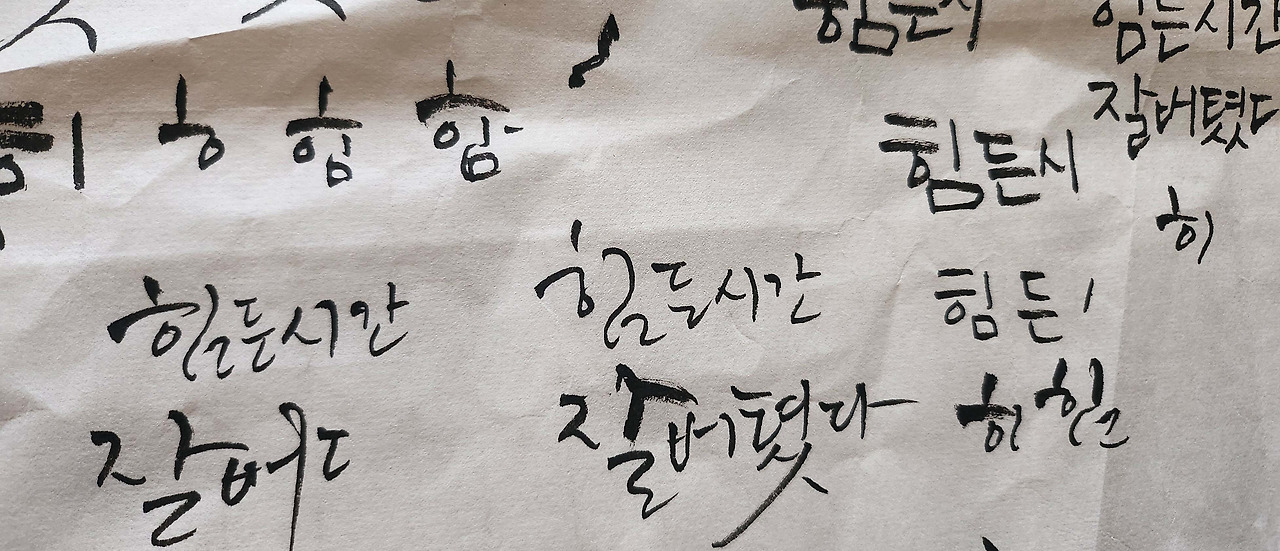 힘든시
힘든시간
잘버텼다
히 ㅎ 힘 함
힘든시
히
힘든시간
힘든시간
힘든
잘버ㄷ
잘버텼다
히 힘